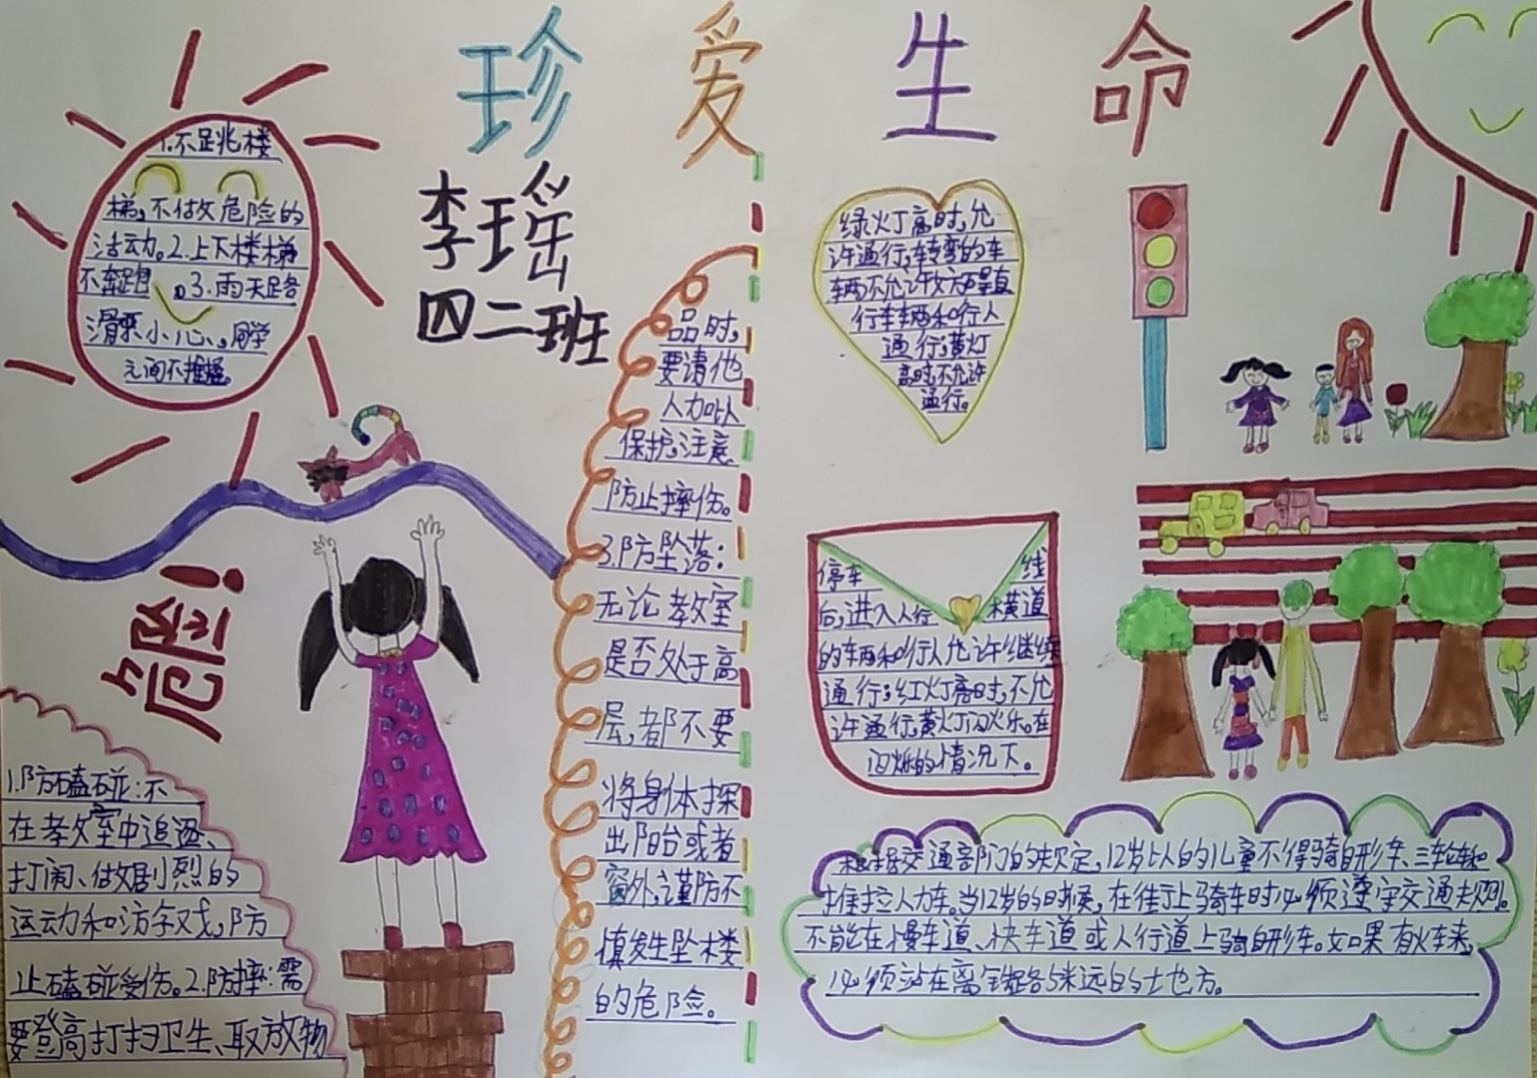 珍爱生命
李瑶
四二班
1.不跳楼
梯,不做危险的
活动。2.上下楼梯
不奔跑。3.雨天路
滑要小心、同学
之间不推搡。
危险!
1.防磕碰:不
在教室中追逐、
打闹、做剧烈的
运动和游戏,防
止磕碰受伤。2.防摔:需
要登高打扫卫生、取放物
品时,
要请他
人加以
保护,注意
防止摔伤。
3.防坠落:
无论教室
是否处于高
层,都不要
将身体探
出阳台或者
窗外,谨防不
慎发生坠楼
的危险。
绿灯亮时,允
许通行,转弯的车
车辆不允许妨碍直
行车辆和行人
通行;黄灯
亮时,不允许
通行。
停车线
后,进入人行横道
的车辆和行人允许继续
通行;红灯亮时,不允
许通行,黄灯闪烁。在
闪烁的情况下。
根据交通部门的规定,12岁以人的儿童不得骑自形车、三轮车和
推拉人力车。当12岁的时候,在街上骑车时必须遵守交通规则。
不能在慢车道、快车道或人行道上骑自形车。如果有火车来,
必须站在离铁路5米远的地方。